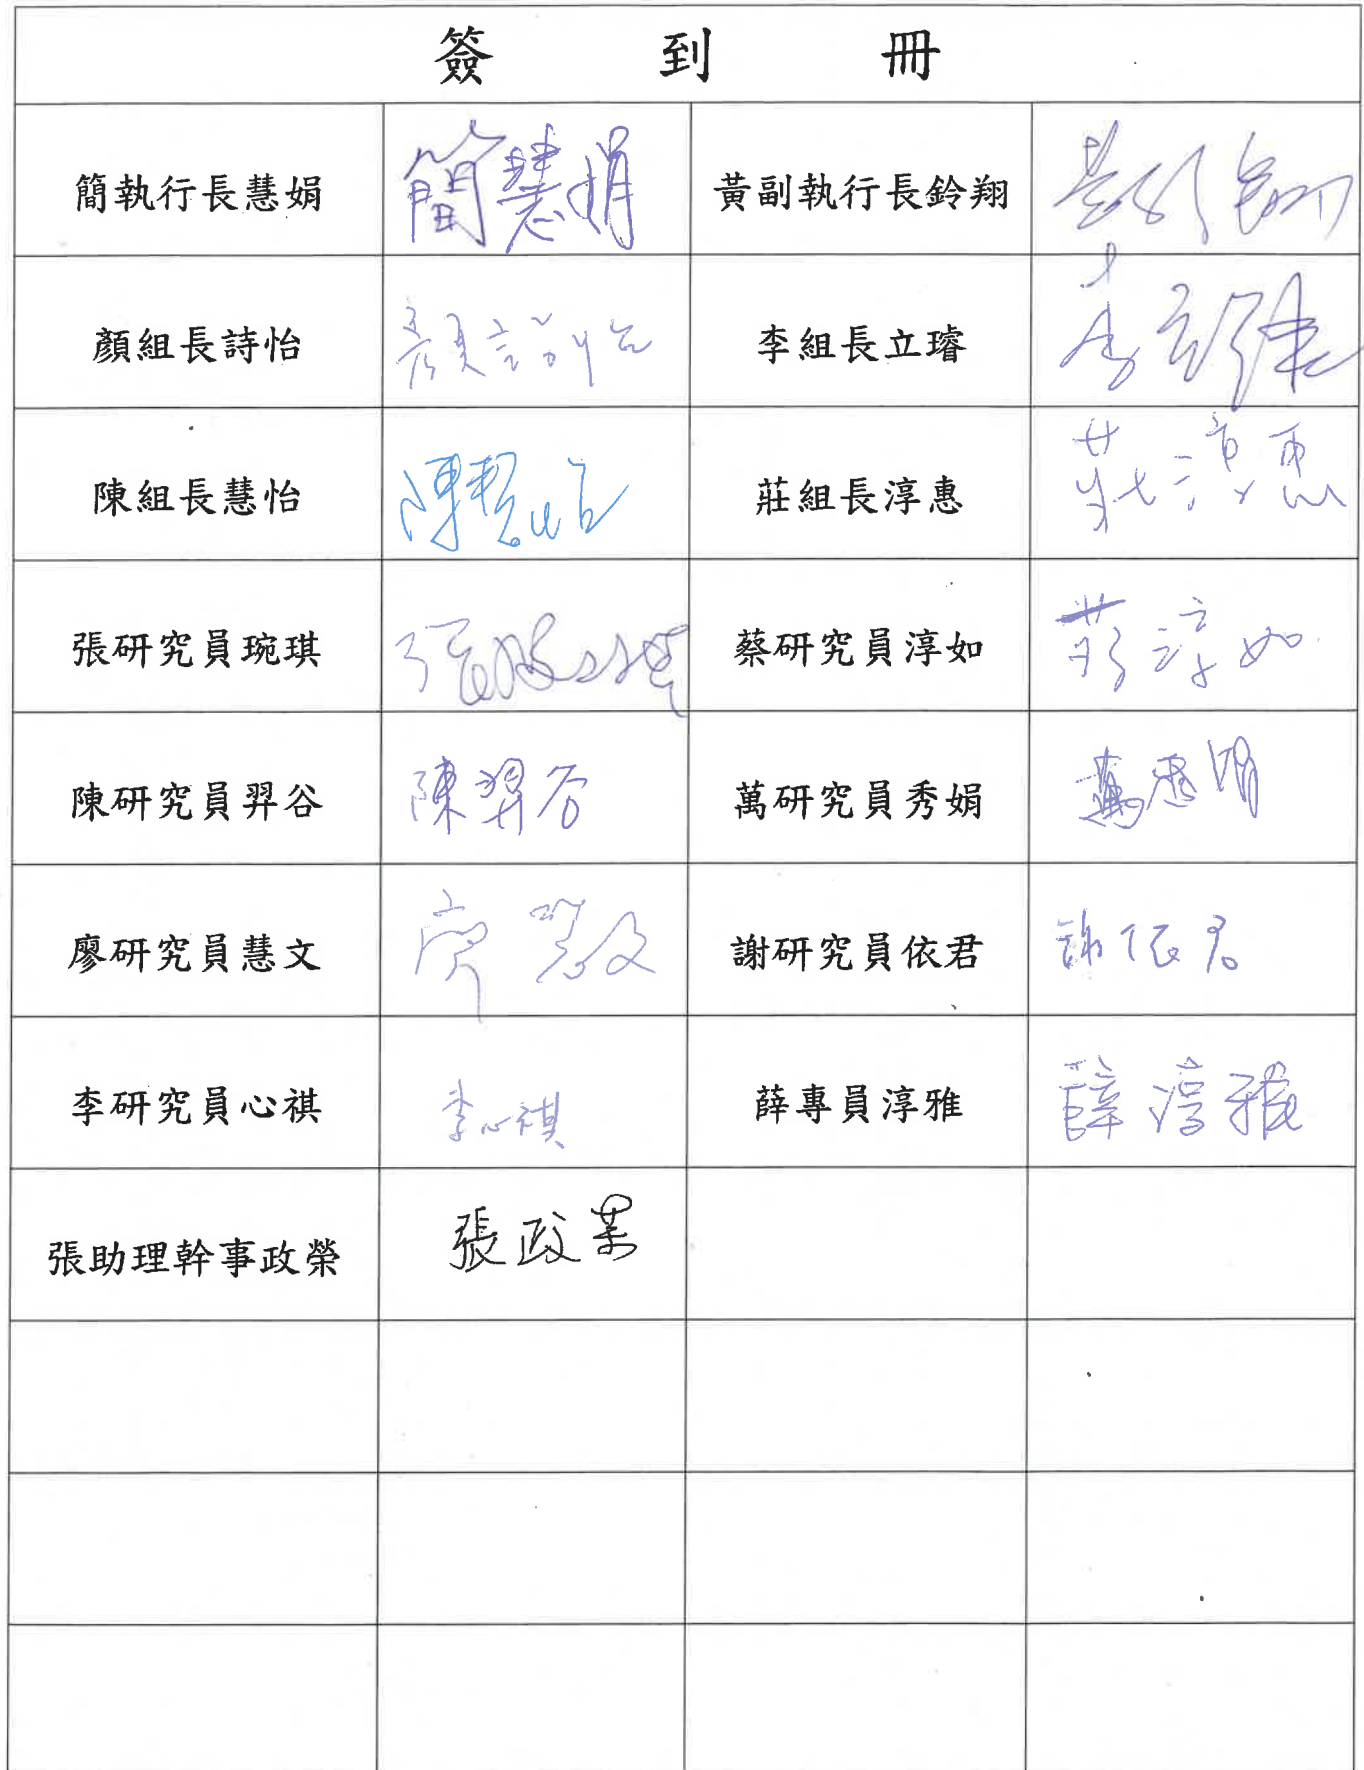 簽到冊
簡執行長慧娟 簡慧娟 黃副執行長鈴翔
顏組長詩怡 顏詩怡 李組長立璿 李立
陳組長慧怡 陳慧怡 莊組長淳惠 莊淳惠
張研究員琬琪 張 蔡研究員淳如 蔡淳如
陳研究員羿谷 陳羿谷 萬研究員秀娟 萬秀娟
廖研究員慧文 廖慧文 謝研究員依君 謝依君
李研究員心祺 李心祺 薛專員淳雅 薛淳雅
張助理幹事政榮 張政榮